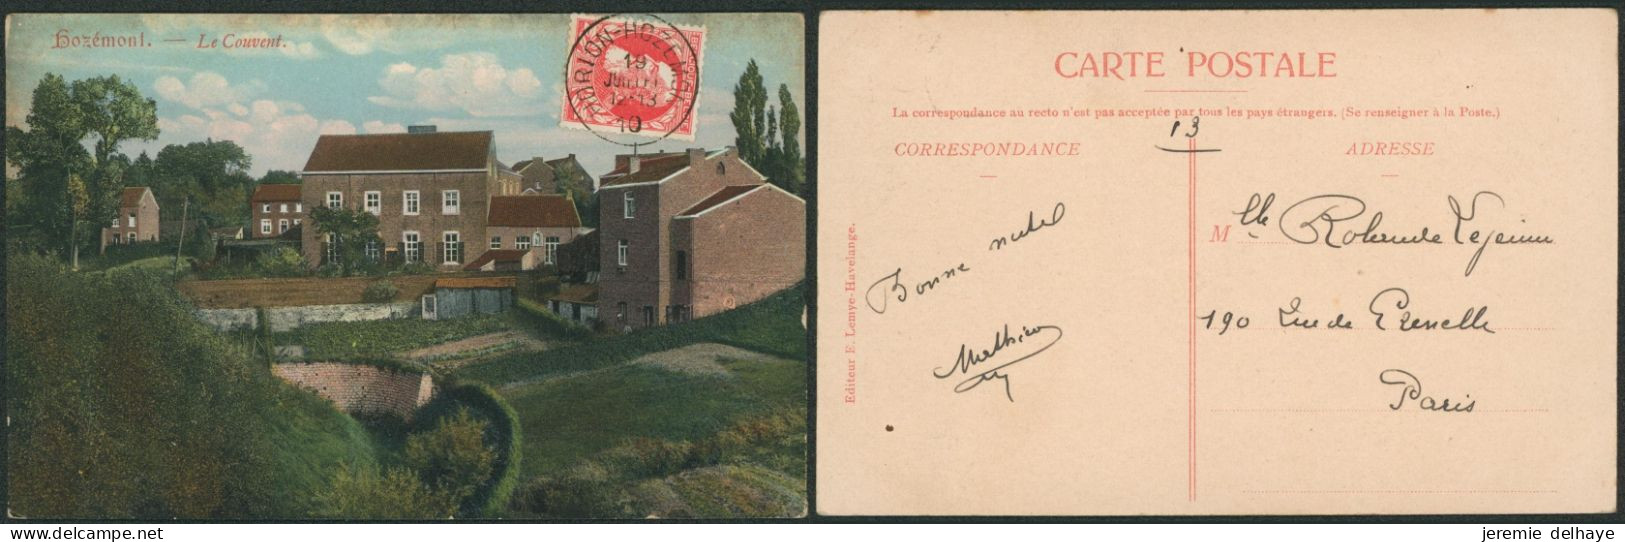 Hozémont. — Le Couvent.
HORION-HOZÉMONT
19
JUILLET
12-13
10
CARTE POSTALE
La correspondance au recto n'est pas acceptée par tous les pays étrangers. (Se renseigner à la Poste.)
13
CORRESPONDANCE
ADRESSE
Mlle Rolande Lejeune
190 Rue de Grenelle
Paris
Bonne
Mathieu
Editeur E. Lemye-Havelange.
jeremie delhaye